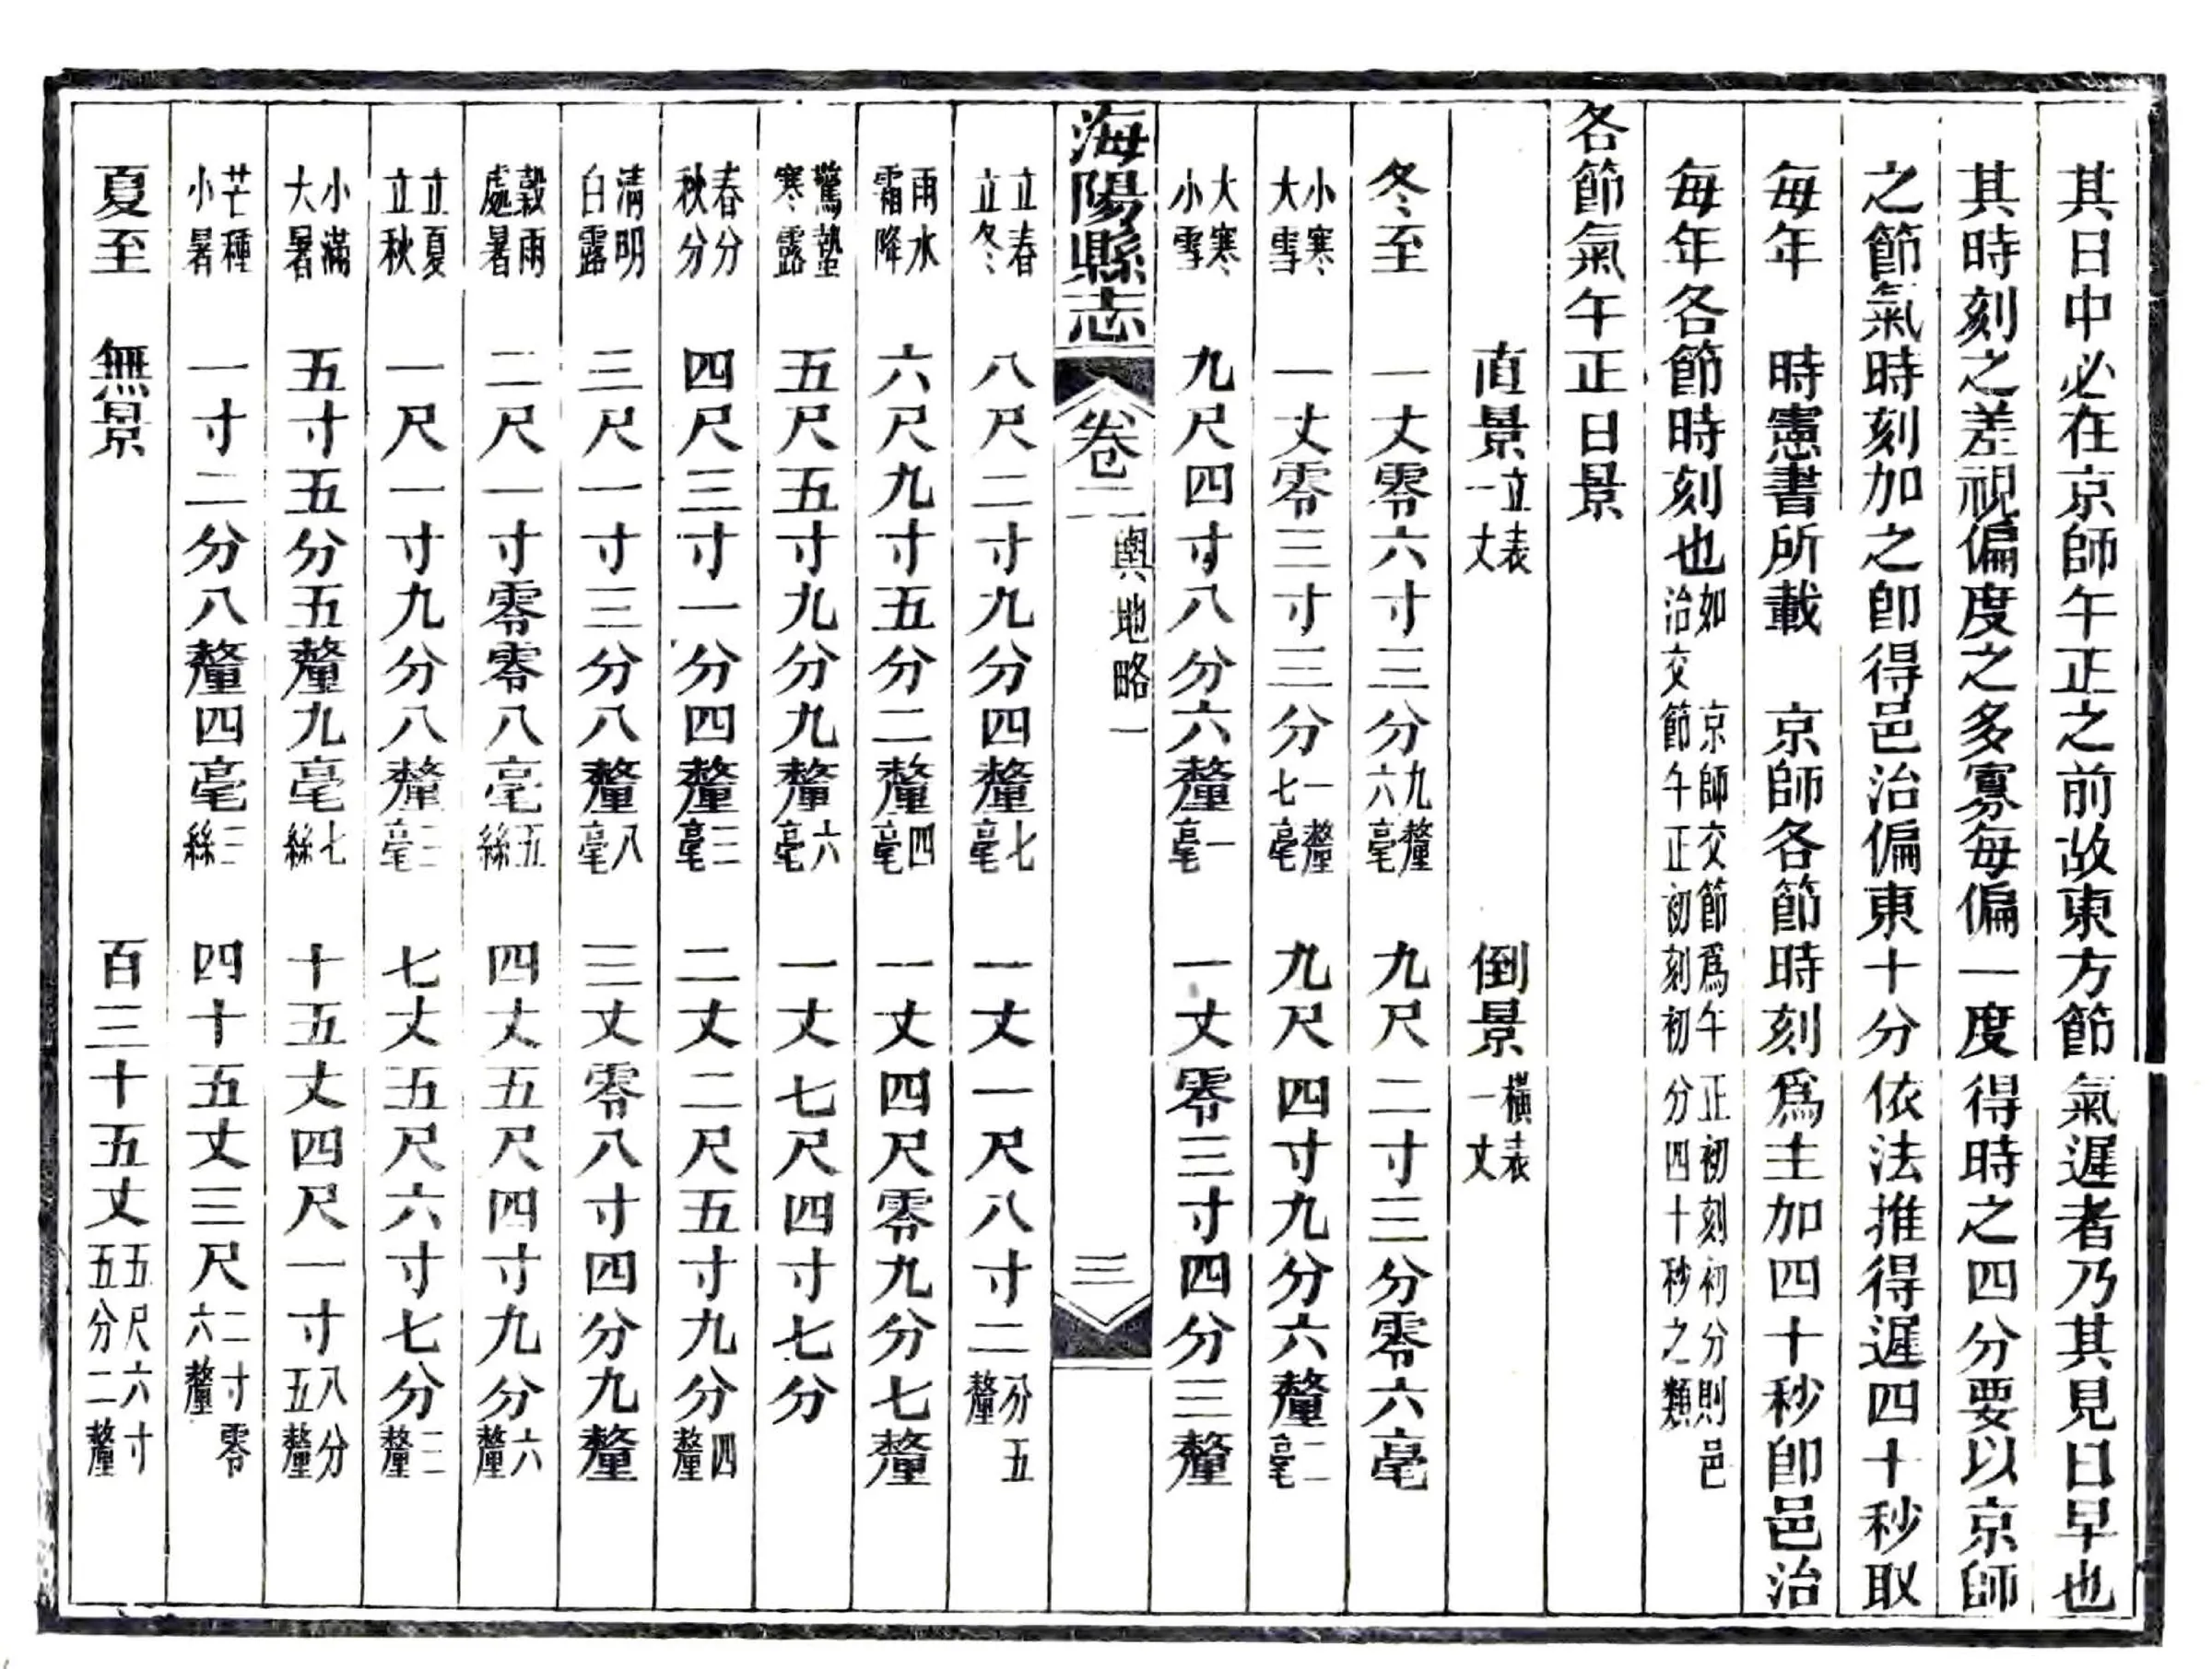 其日中必在京師午正之前故東方節氣遲者乃其見日早也
其時刻之差視偏度之多寡每偏一度得時之四分要以京師
之節氣時刻加之卽得邑治偏東十分依法推得遲四十秒取
每年　時憲書所載　京師各節時刻爲主加四十秒卽邑治
每年各節時刻也如　京師交節爲午正初刻初分則邑治交節午正初刻初分四十秒之類
各節氣午正日景
直景立表一丈　倒景橫表一丈
冬至　一丈零六寸三分九釐六毫　九尺二寸三分零六毫
小寒大雪　一丈零三寸三分一釐七毫　九尺四寸九分六釐二毫
大寒小雪　九尺四寸八分六釐一毫　一丈零三寸四分三釐
海陽縣志　卷二　輿地略一　三
立春立冬　八尺二寸九分四釐七毫　一丈一尺八寸二分五釐
雨水霜降　六尺九寸五分二釐四毫　一丈四尺零九分七釐
驚蟄寒露　五尺五寸九分九釐六毫　一丈七尺四寸七分
春分秋分　四尺三寸一分四釐三毫　二丈二尺五寸九分四釐
清明白露　三尺一寸三分八釐八毫　三丈零八寸四分九釐
穀雨處暑　二尺一寸零零八毫五絲　四丈五尺四寸九分六釐
立夏立秋　一尺一寸九分八釐三毫　七丈五尺六寸七分三釐
小滿大暑　五寸五分五釐九毫七絲　十五丈四尺一寸八分五釐
芒種小暑　一寸二分八釐四毫三絲　四十五丈三尺二寸零六釐
夏至　無景　百三十五丈五尺六寸五分二釐